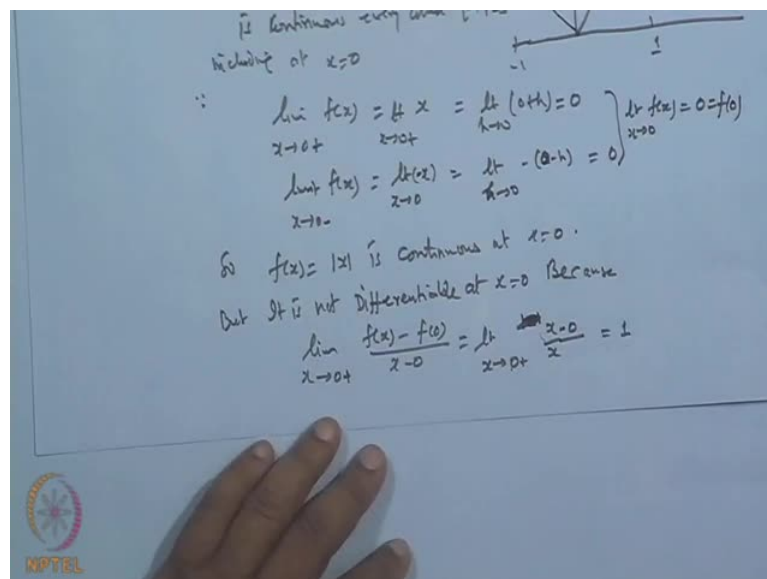 is continuous every where
including at x=0
-1 1
∵ lim x→0+ f(x) = lt x→0+ x = lt h→0 (0+h) = 0
limit x→0- f(x) = lt x→0 (-x) = lt h→0 -(0-h) = 0
lt x→0 f(x) = 0 = f(0)
So f(x) = |x| is continuous at x=0.
But It is not Differentiable at x=0 Because
lim x→0+ f(x) - f(0) / x-0 = lt x→0+ x-0 / x = 1
NPTEL